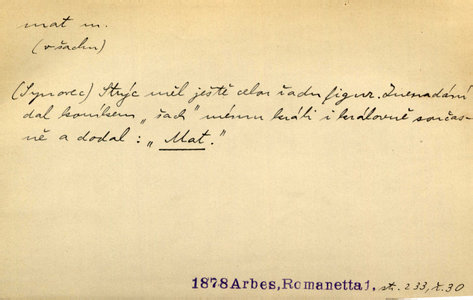 mat m.
(v šachu)
(Synovec) Strýc měl ještě celou řadu figur. Znenadání
dal koníkem „šach" mému králi i královně součas-
ně a dodal: „Mat."
1878 Arbes, Romanetta 1, str. 233, ř. 30